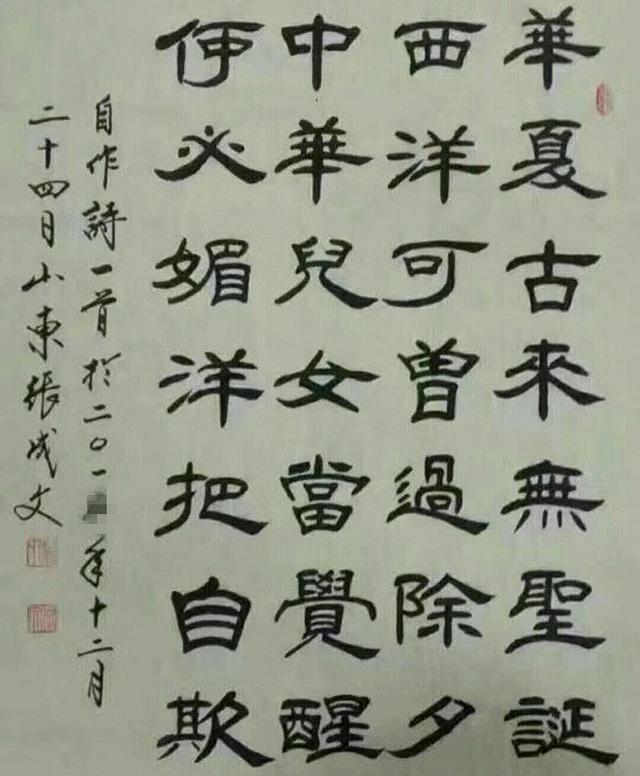 華夏古來無聖誕
西洋可曾過除夕
中華兒女當覺醒
伊必媚洋把自欺
自作詩一首於二〇一年十二月
二十四日山東張成文